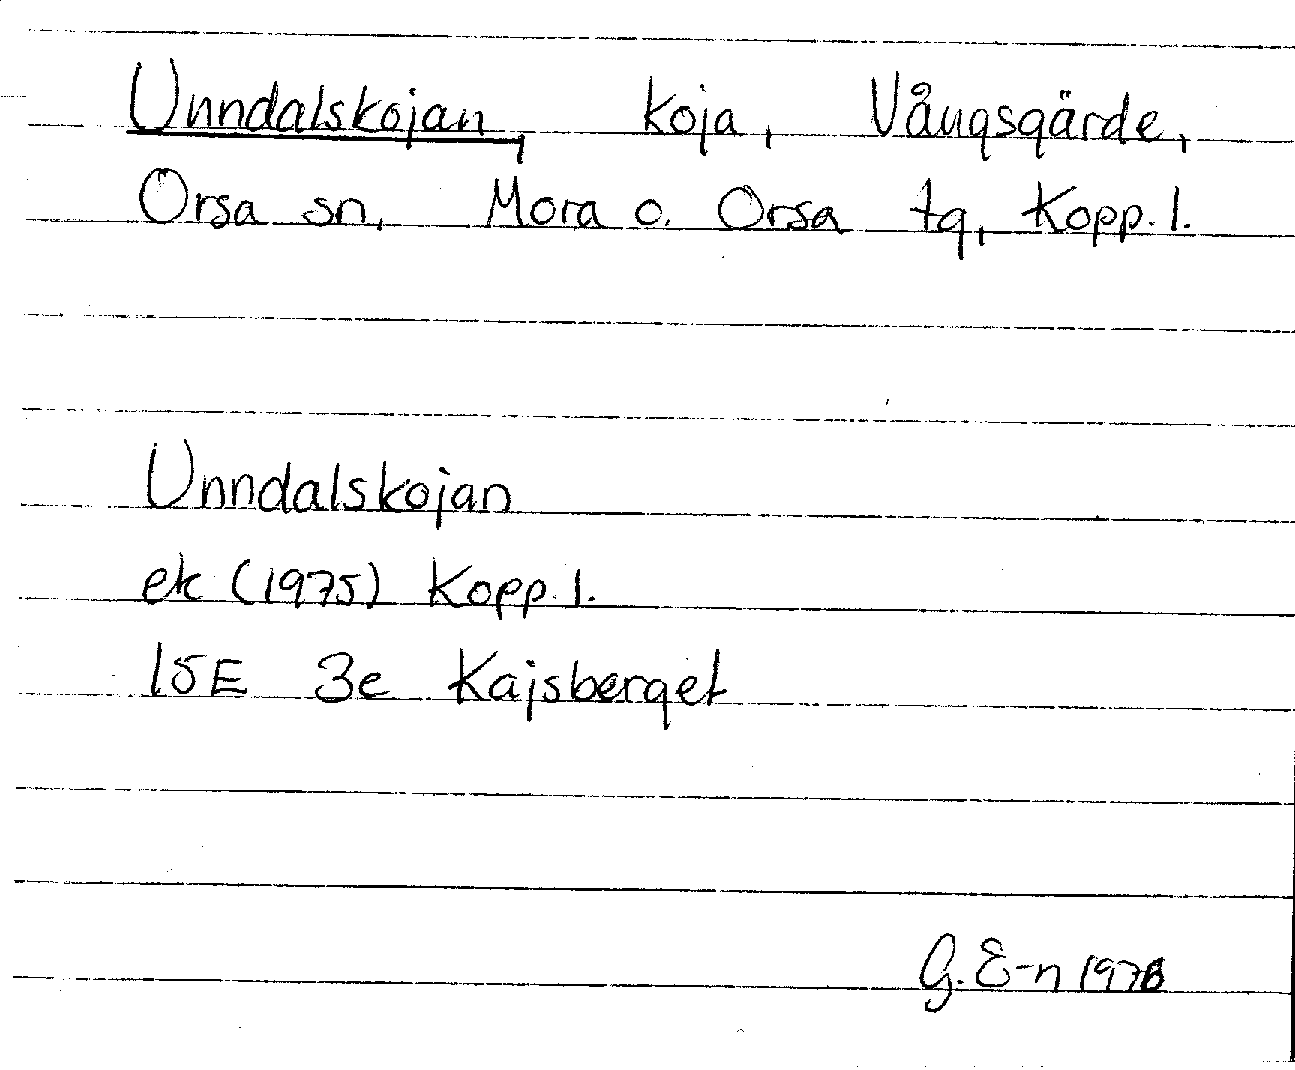 Unndalskojan, koja, Vångsgärde,
Orsa sn, Mora o. Orsa tg, Kopp. l.
Unndalskojan
ek (1975) Kopp. l.
15E 3e Kajsberget
G. E-n 1978